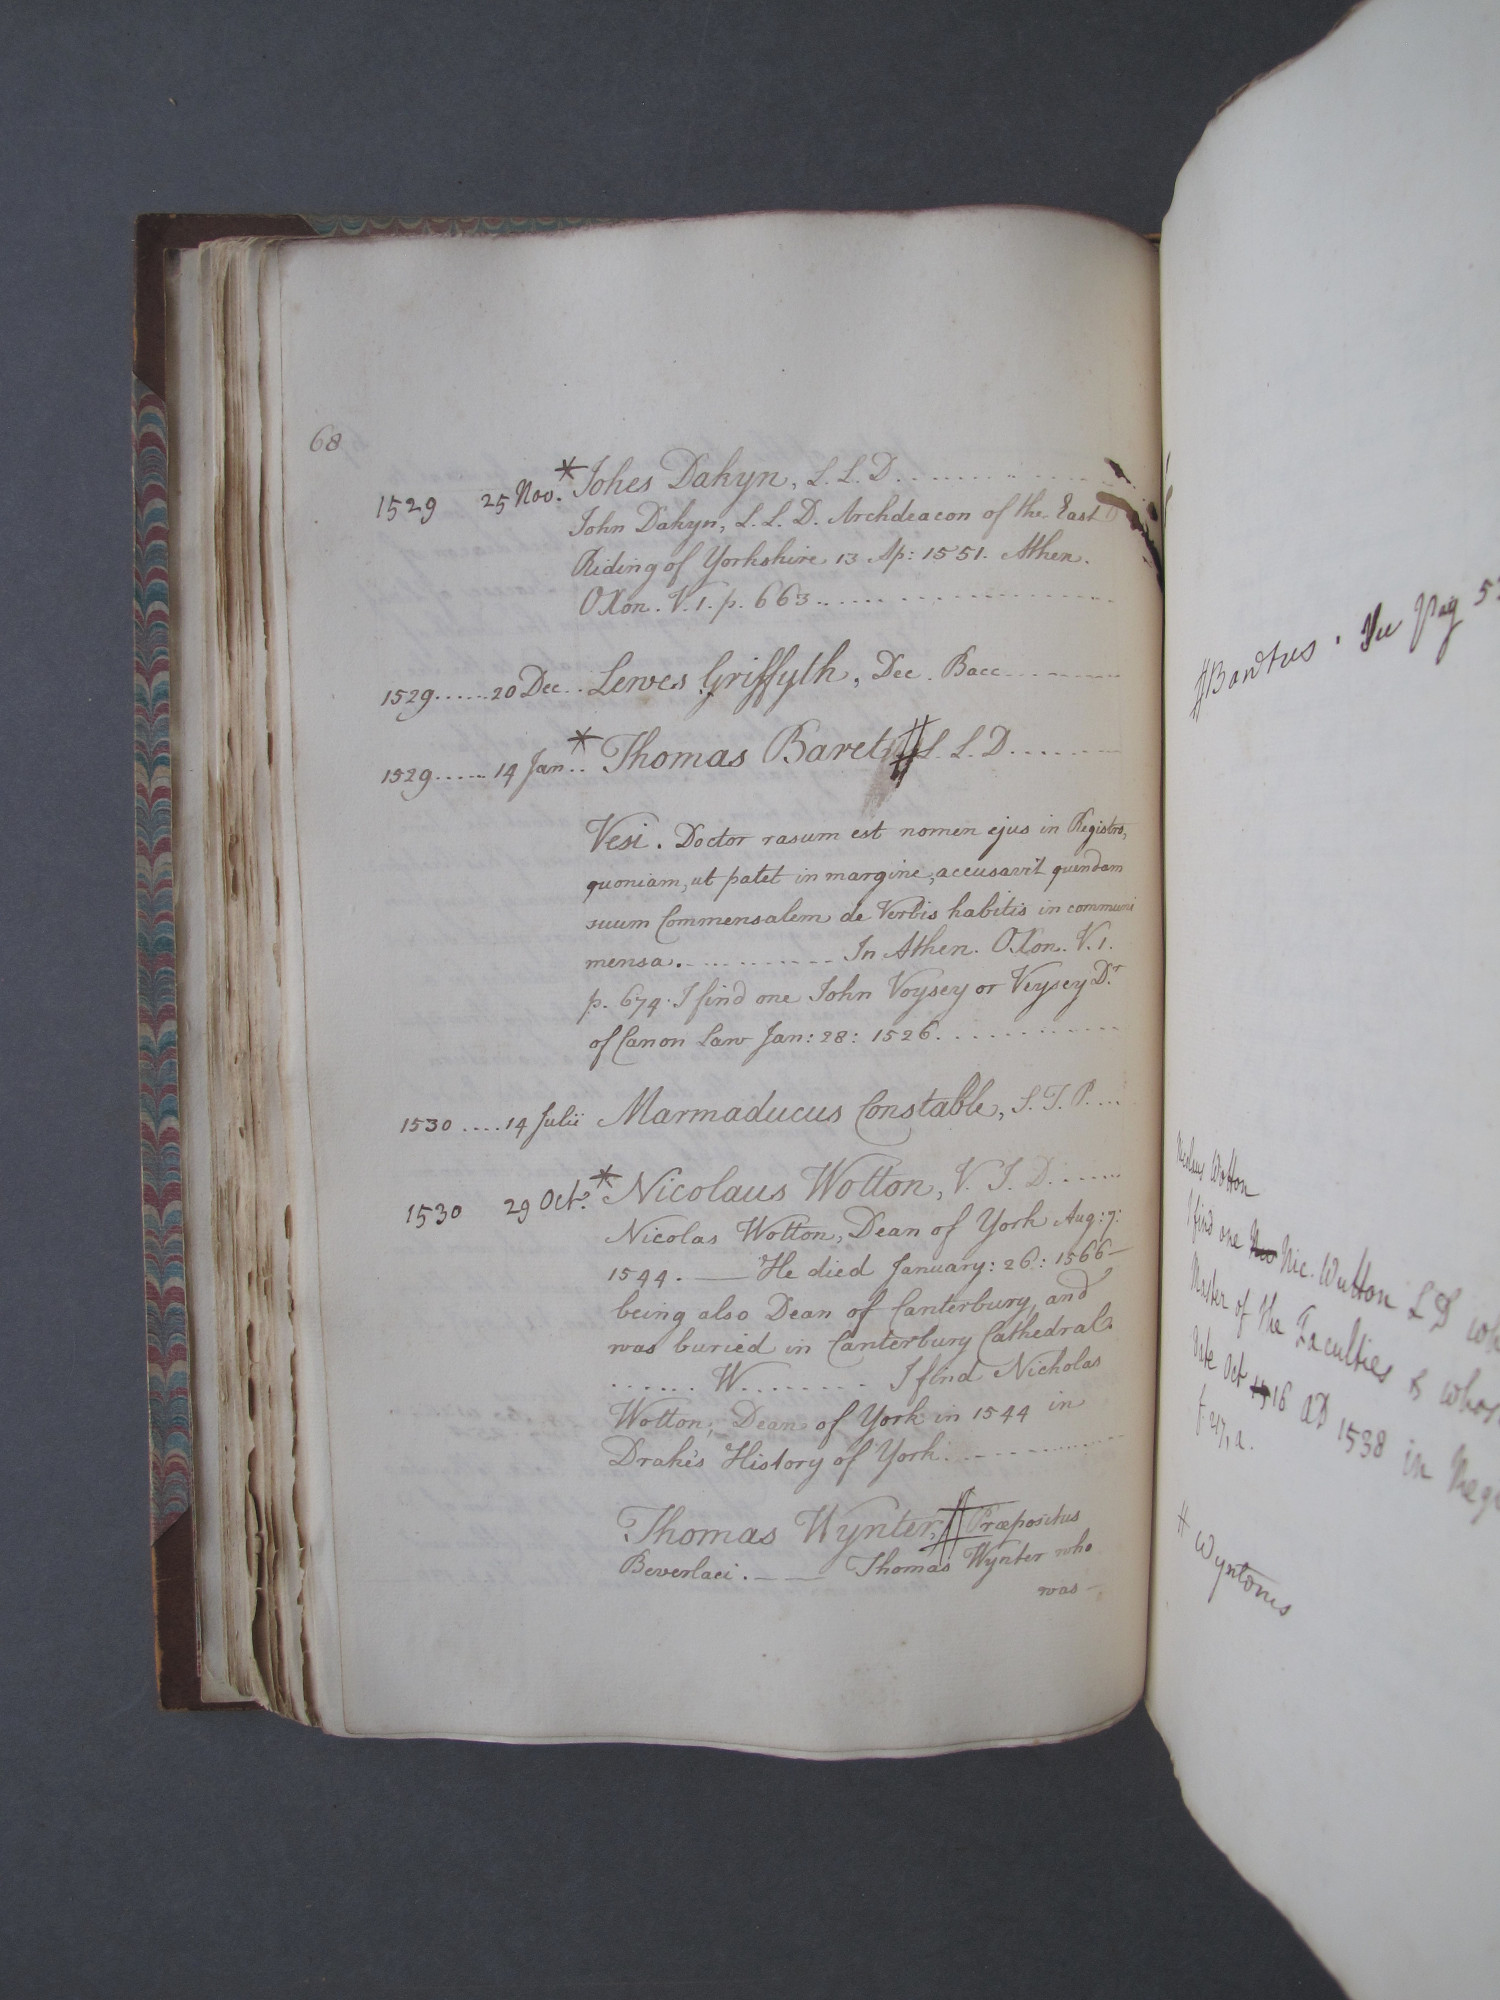 68
1529 25 Nov. * Johes Dakyn, L. L. D.
John Dakyn, L. L. D. Archdeacon of the East
Riding of Yorkshire 13 Ap: 1551. Athen.
OXon. V. 1. p. 663
1529 20 Dec Lewes Griffyth, Dec. Bacc
1529 14 Jan * Thomas Baret # L. L. D
Vesi. Doctor rasum est nomen ejus in Registro,
quoniam, ut patet in margine, accusavit quendam
suum Commensalem de Verbis habitis in communi
mensa. In Athen. OXon. V. 1.
p. 674. I find one John Voysey or Veysey Dr
of Canon Law Jan: 28: 1526
1530 14 Julii Marmaducus Constable, S. T. P.
1530 29 Oct. * Nicolaus Wotton, V. J. D.
Nicolas Wotton, Dean of York Aug: 7:
1544. — He died January: 26: 1566 —
being also Dean of Canterbury, and
was buried in Canterbury Cathedral.
W. I find Nicholas
Wotton, Dean of York in 1544 in
Drake's History of York
Thomas Wynter, # Præpositus
Beverlaci. — Thomas Wynter who
was —
Pag
Nicolaus Wotton
I find one Nic. Wutton L D
Master of the Faculties &
date Oct 16 AD 1538 in
f. 217, a.
# Wyntonus